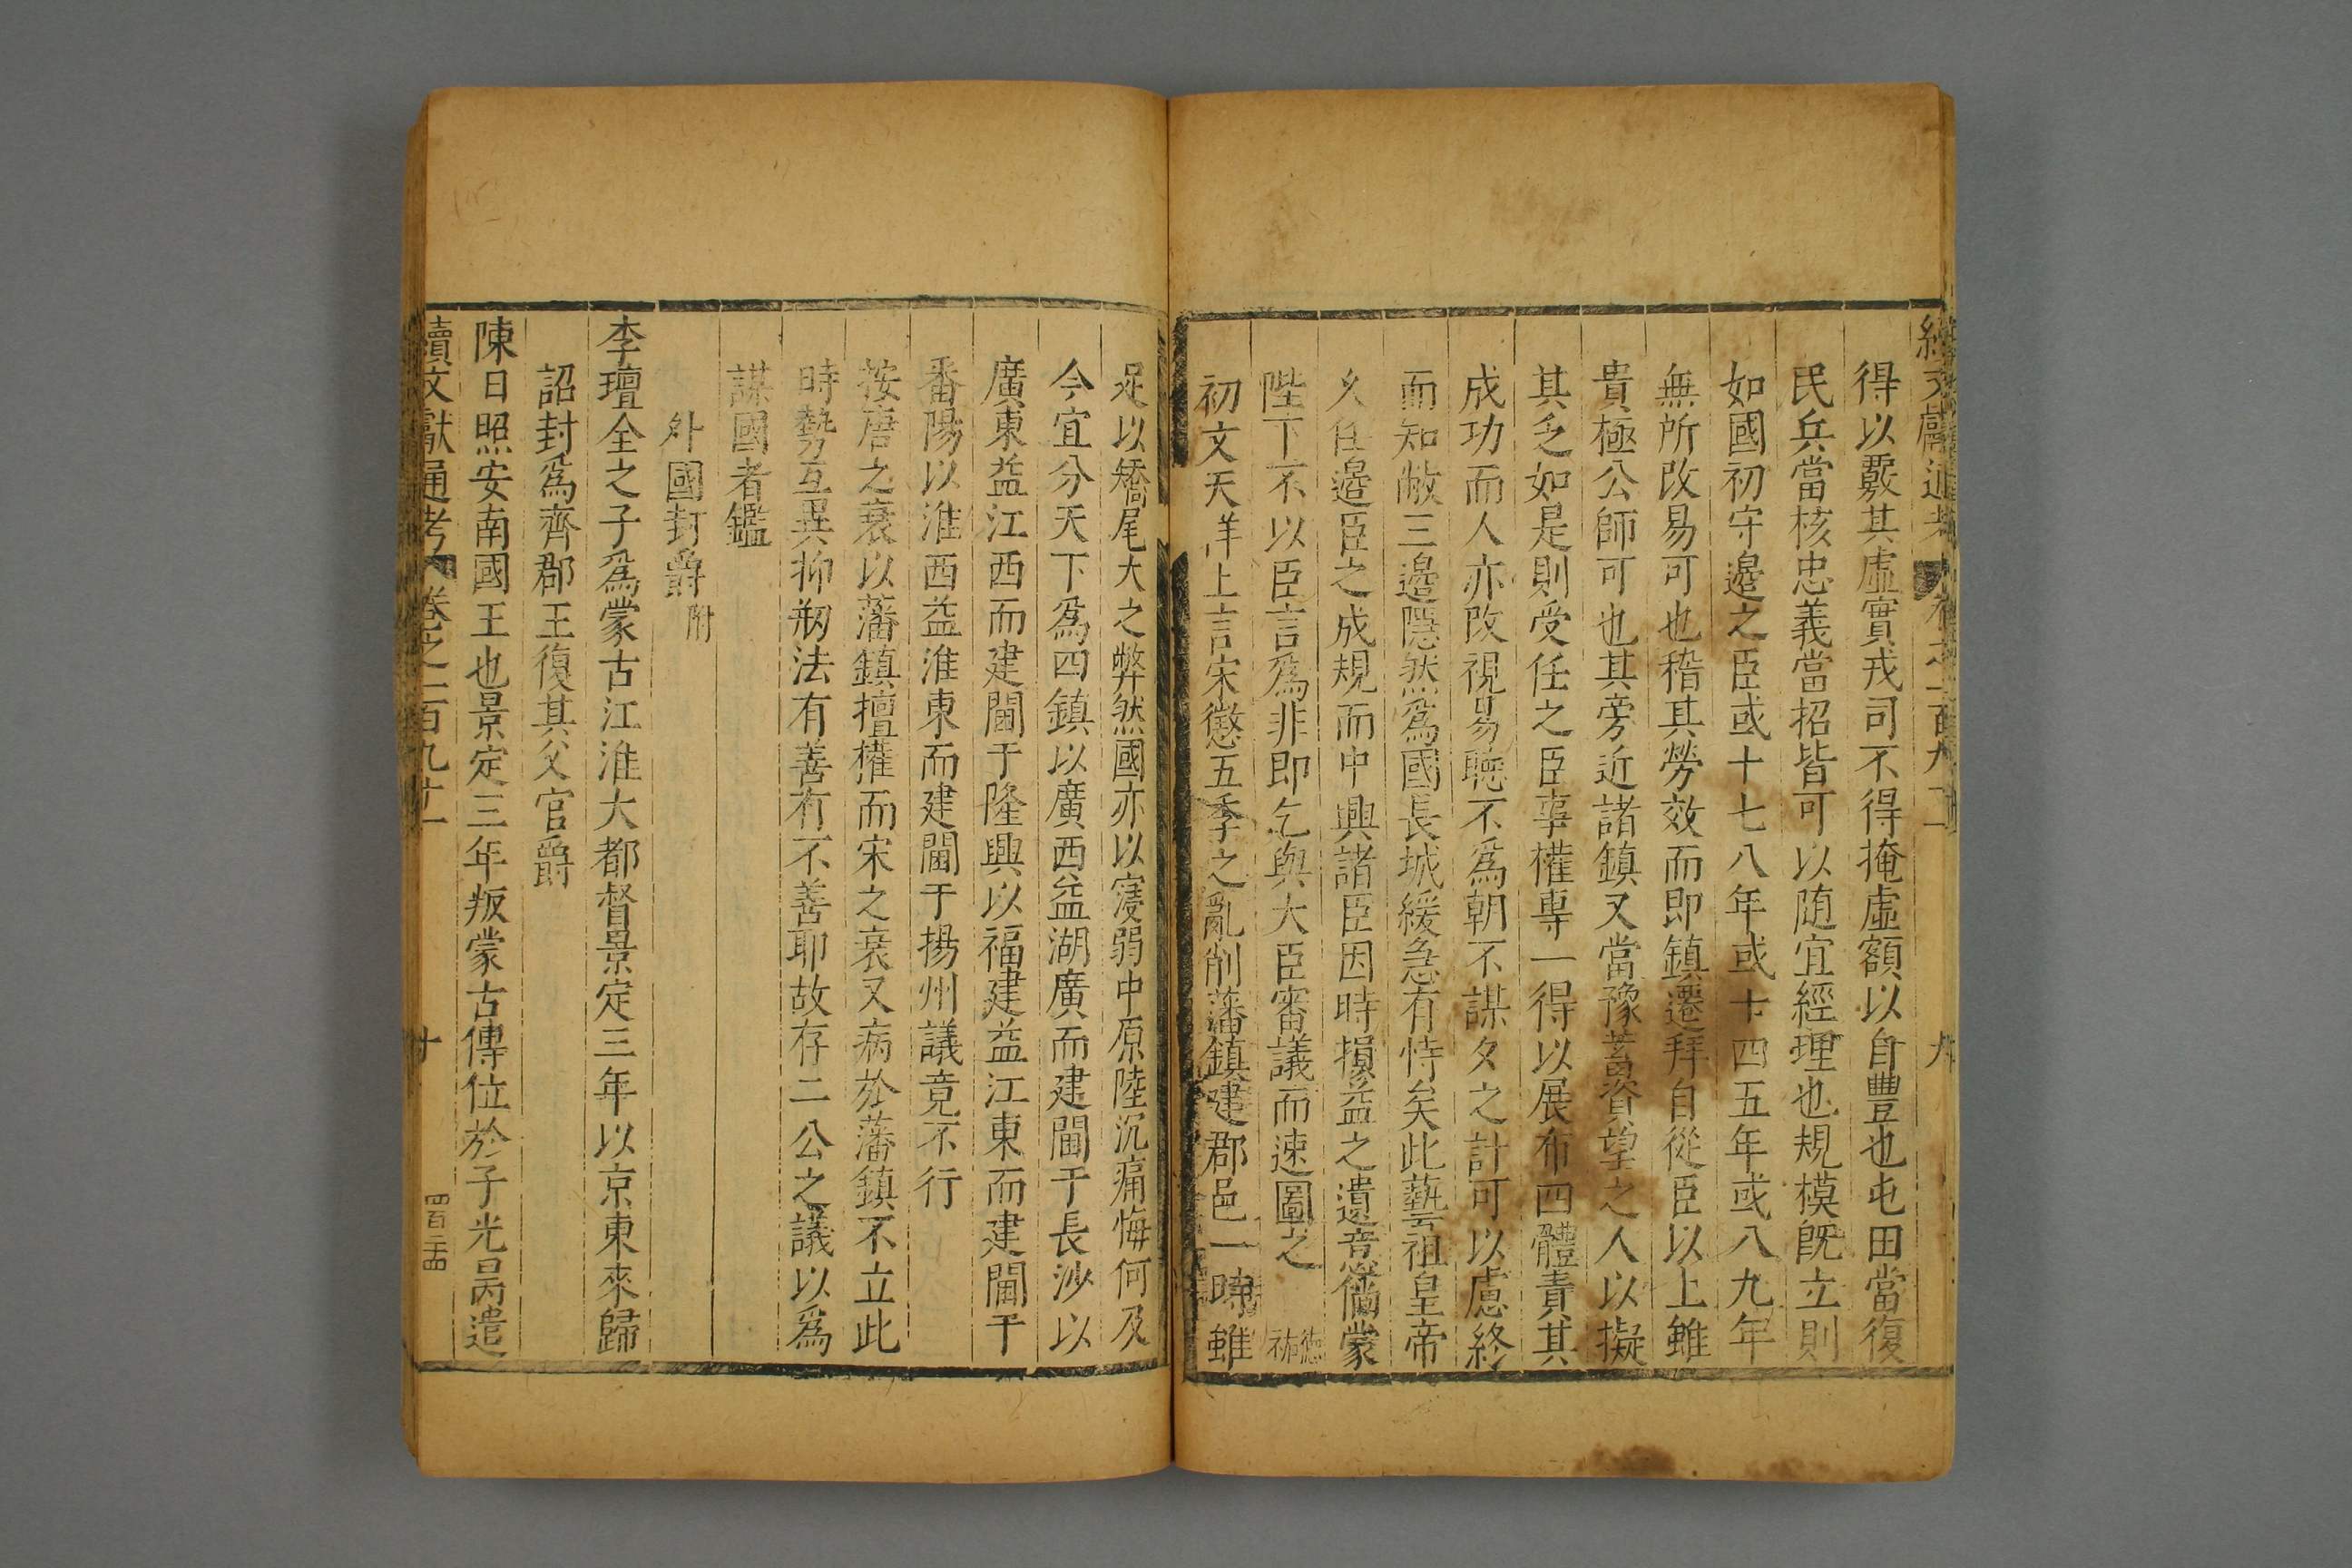 續文獻通考 卷之一百九二 九
得以覈其虛實戎司不得掩虛額以自豊也屯田當復
民兵當核忠義當招皆可以随宜經理也規模旣立則
如國初守邉之臣或十七八年或十四五年或八九年
無所改易可也稽其勞效而即鎮遷拜自從臣以上雖
貴極公師可也其旁近諸鎮又當豫蓄資望之人以擬
其乏如是則受任之臣事權專一得以展布四體責其
成功而人亦改視易聴不爲朝不謀夕之計可以慮終
而知敝三邉隱然爲國長城緩急有恃矣此藝祖皇帝
久任邉臣之成規而中興諸臣因時損益之遺意儻蒙
陛下不以臣言爲非即乞與大臣審議而速圖之 德祐
初文天祥上言宋懲五季之亂削藩鎮建郡邑一時雖
足以矯尾大之弊然國亦以寖弱中原陸沉痛悔何及
今宜分天下爲四鎮以廣西益湖廣而建閫于長沙以
廣東益江西而建閫于隆興以福建益江東而建閫于
番陽以淮西益淮東而建閫于揚州議竟不行
按唐之衰以藩鎮擅權而宋之衰又病於藩鎮不立此
時勢互異抑剏法有善有不善耶故存二公之議以爲
謀國者鑑
外國封爵附
李璮全之子爲蒙古江淮大都督景定三年以京東來歸
詔封爲齊郡王復其父官爵
陳日照安南國王也景定三年叛蒙古傳位於子光昺遣
續文獻通考 卷之一百九十二 十